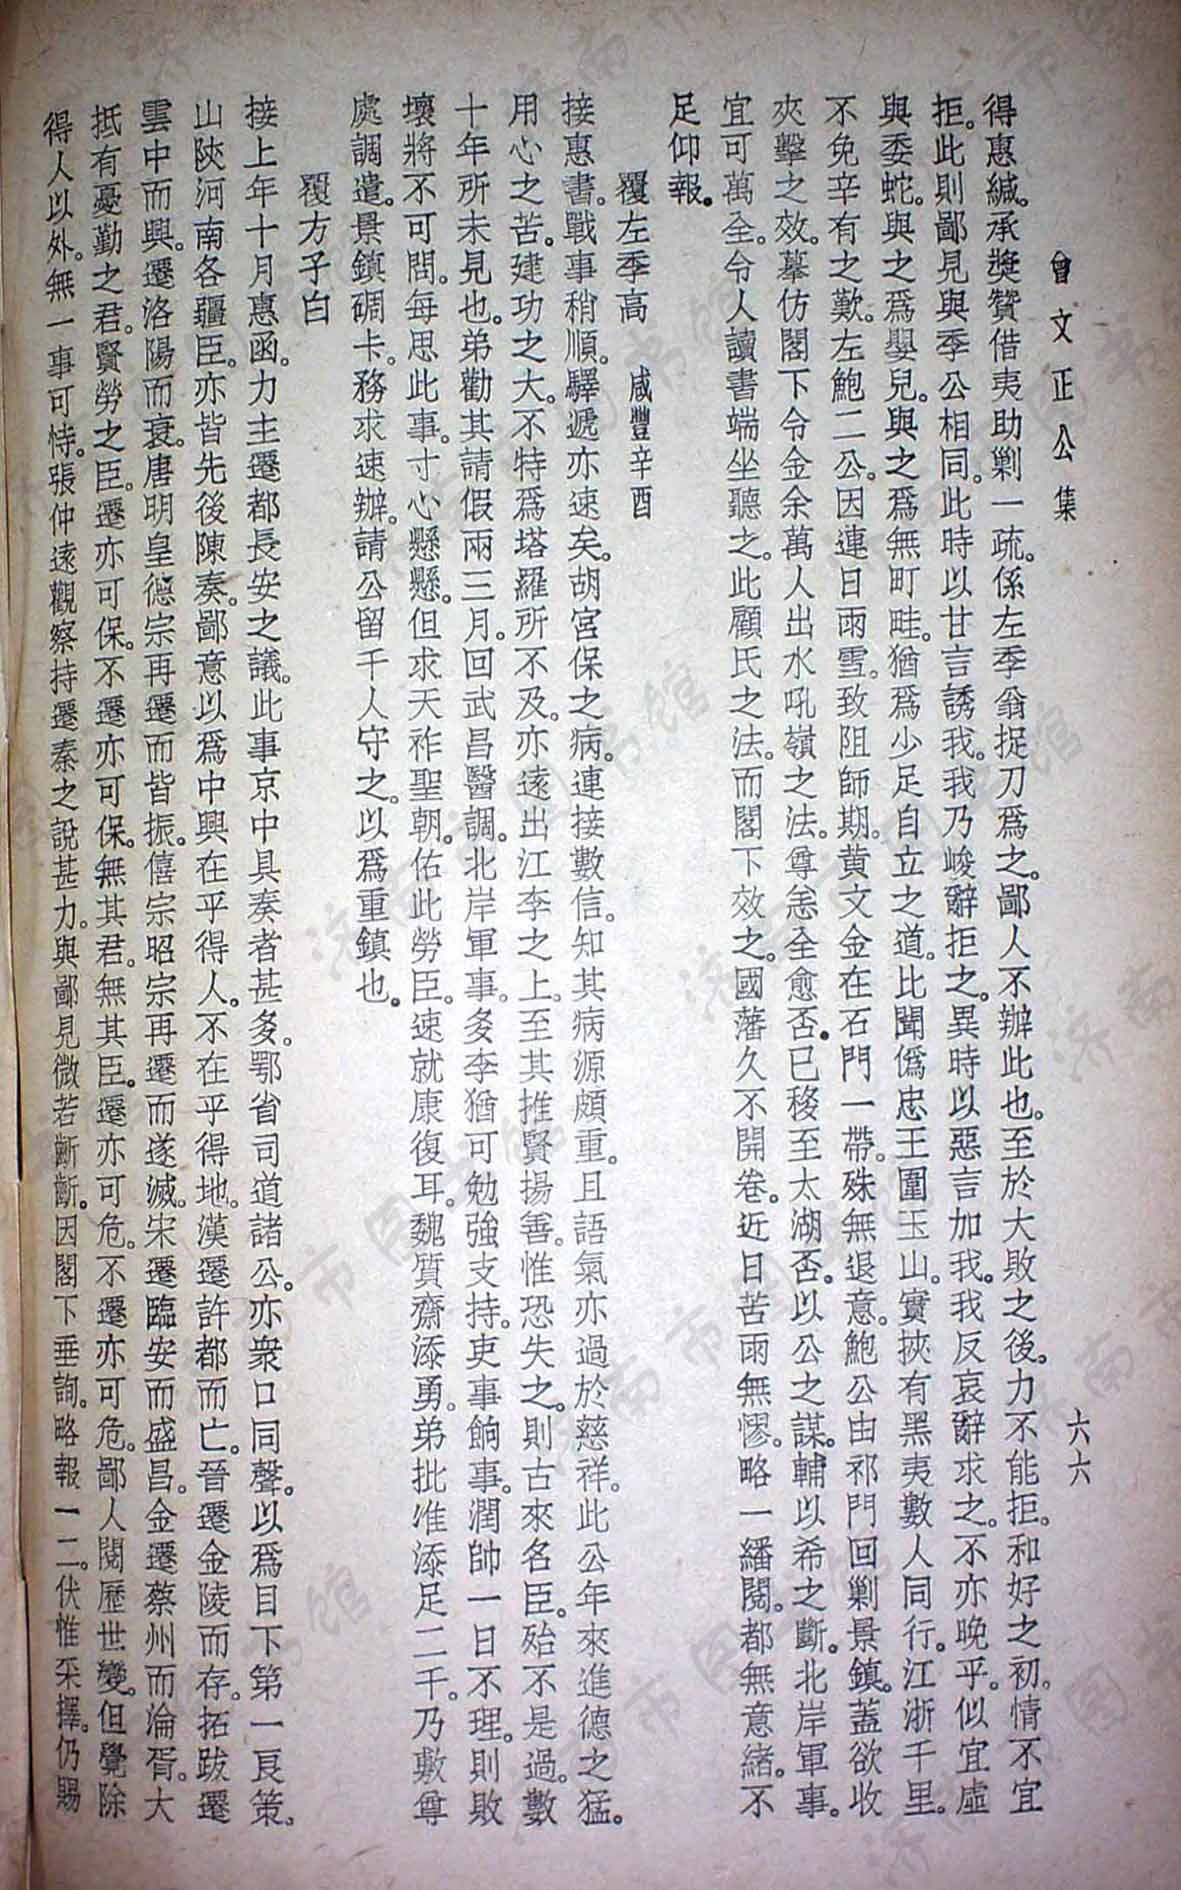 曾文正公集
六六
得惠緘。承獎贊借夷助剿一疏。係左季翁捉刀爲之。鄙人不辦此也。至於大敗之後。力不能拒。和好之初。情不宜
拒。此則鄙見與季公相同。此時以甘言誘我。我乃峻辭拒之。異時以惡言加我。我反哀辭求之。不亦晚乎。似宜虛
與委蛇。與之爲嬰兒。與之爲無町畦。猶爲少足自立之道。比聞僞忠王圍玉山。實挾有黑夷數人同行。江浙千里。
不免辛有之歎。左鮑二公。因連日雨雪。致阻師期。黃文金在石門一帶。殊無退意。鮑公由祁門回剿景鎮。蓋欲收
夾擊之效。摹仿閣下令金余萬人出水吼嶺之法。尊恙全愈否。已移至太湖否。以公之謀。輔以希之斷。北岸軍事。
宜可萬全。令人讀書端坐聽之。此顧氏之法。而閣下效之。國藩久不開卷。近日苦雨無憀。略一繙閱。都無意緒。不
足仰報。
覆左季高 咸豐辛酉
接惠書。戰事稍順。驛遞亦速矣。胡宮保之病。連接數信。知其病源頗重。且語氣亦過於慈祥。此公年來進德之猛。
用心之苦。建功之大。不特爲塔羅所不及。亦遠出江李之上。至其推賢揚善。惟恐失之。則古來名臣。殆不是過。數
十年所未見也。弟勸其請假兩三月。回武昌醫調。北岸軍事。多李猶可勉強支持。吏事餉事。潤帥一日不理。則敗
壞將不可問。每思此事。寸心懸懸。但求天祚聖朝。佑此勞臣。速就康復耳。魏質齋添勇。弟批准添足二千。乃敷尊
處調遣。景鎮碉卡。務求速辦。請公留千人守之。以爲重鎮也。
覆方子白
接上年十月惠函。力主遷都長安之議。此事京中具奏者甚多。鄂省司道諸公。亦衆口同聲。以爲目下第一良策。
山陝河南各疆臣。亦皆先後陳奏。鄙意以爲中興在乎得人。不在乎得地。漢遷許都而亡。晉遷金陵而存。拓跋遷
雲中而興。遷洛陽而衰。唐明皇德宗再遷而皆振。僖宗昭宗再遷而遂滅。宋遷臨安而盛昌。金遷蔡州而淪胥。大
抵有憂勤之君。賢勞之臣。遷亦可保。不遷亦可保。無其君。無其臣。遷亦可危。不遷亦可危。鄙人閱歷世變。但覺除
得人以外。無一事可恃。張仲遠觀察持遷秦之說甚力。與鄙見微若齗齗。因閣下垂詢。略報一二。伏惟采擇。仍賜